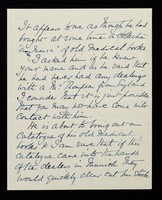 It appears to me as though he had
bought at some time a collection
en "masse" of old medical books
I asked him if he knew
your name and he said that
he had never had any dealings
with a Mr Thompson from England
I consider that it is just possible
that you may not have come into
contact with him.
He is about to bring out an
Catalogue of his old Medical
books & I am sure that if this
Catalogue came into the hands
of the dealers in Munich they
would quickly clear out his stock